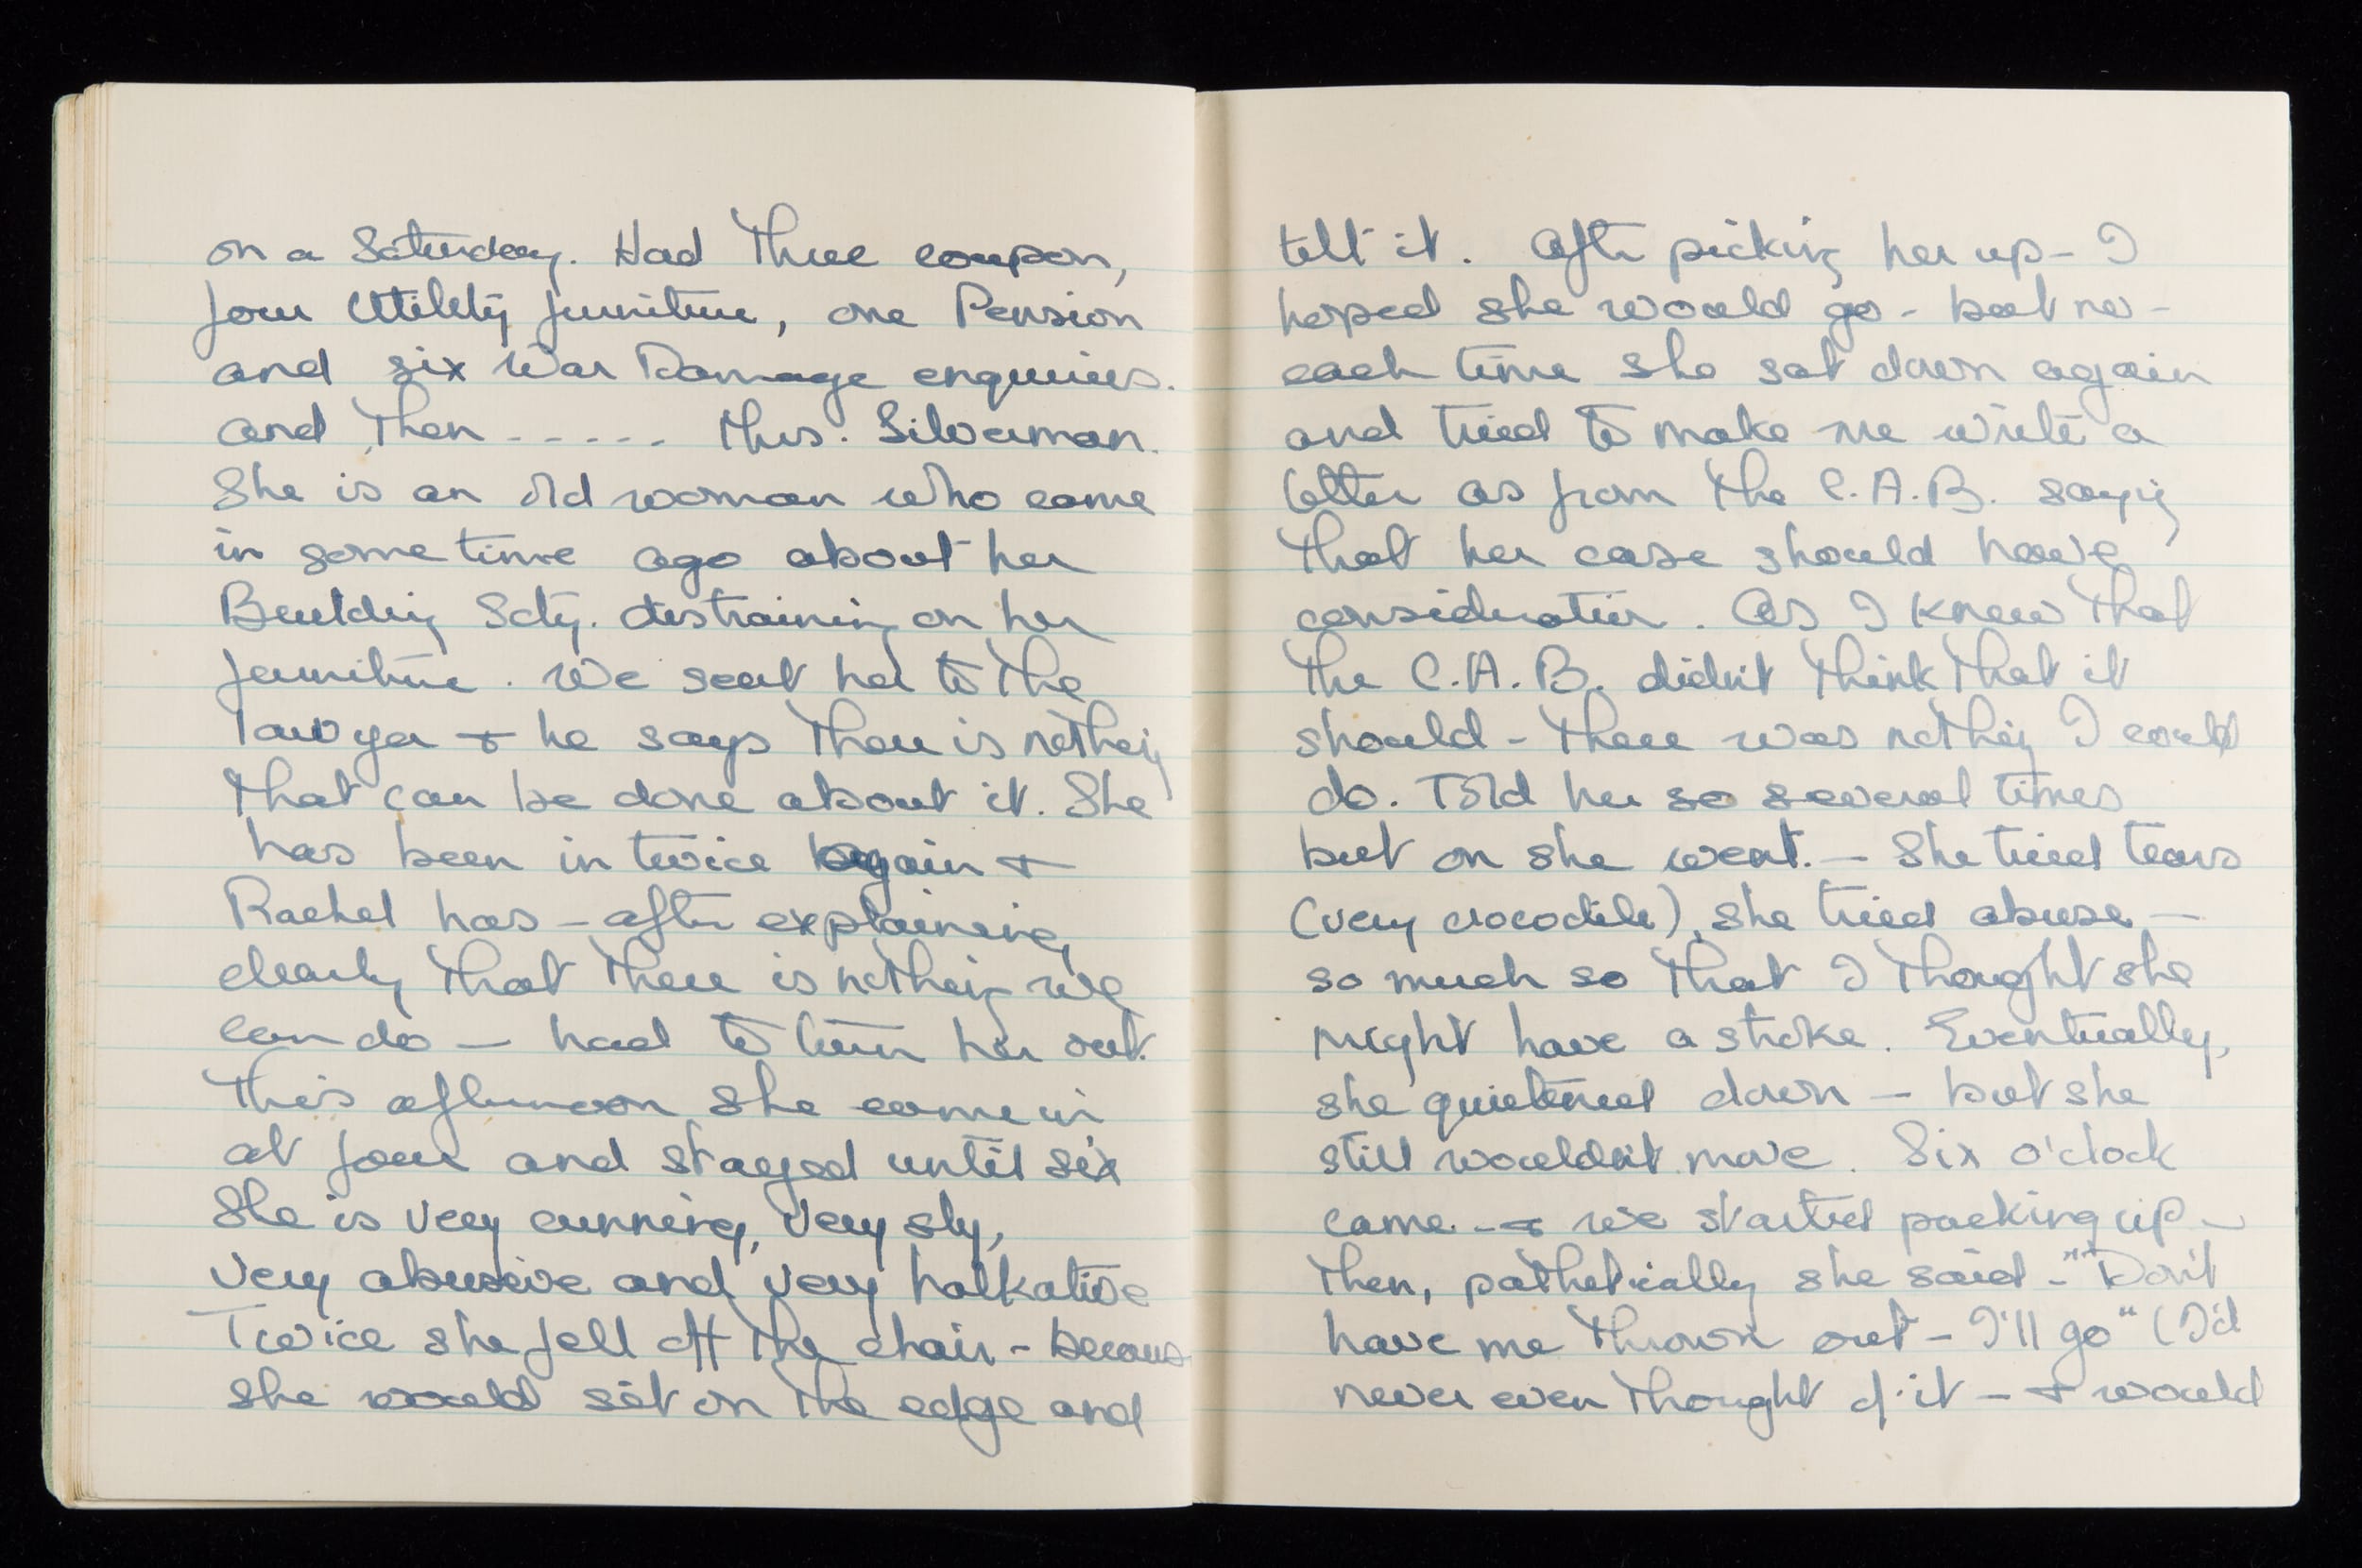 on a Saturday. Had three coupon,
four Utility furniture, one Pension
and six War Damage enquiries.
and then ----- Mrs. Silverman.
She is an old woman who came
in some time ago about her
Building Scty. distraining on her
furniture. We sent her to the
lawyer + he says there is nothing
that can be done about it. She
has been in twice again +
Rachel has - after explaining
clearly that there is nothing we
can do — had to turn her out.
This afternoon she came in
at four and stayed until six
She is very cunning, very sly,
very abusive and very talkative
Twice she fell off the chair - because
she would sit on the edge and
tilt it. After picking her up - I
hoped she would go - but no -
each time she sat down again
and tried to make me write a
letter as from the C.A.B. saying
that her case should have
consideration. As I knew that
the C.A.B. didn't think that it
should - there was nothing I could
do. Told her so several times
but on she went. — She tried tears
(very crocodile), she tried abuse —
so much so that I thought she
might have a stroke. Eventually,
she quietened down — but she
still wouldn't move. Six o'clock
came - + we started packing up -
then, pathetically she said - "Don't
have me thrown out - I'll go" (I'd
never even thought of it - + would